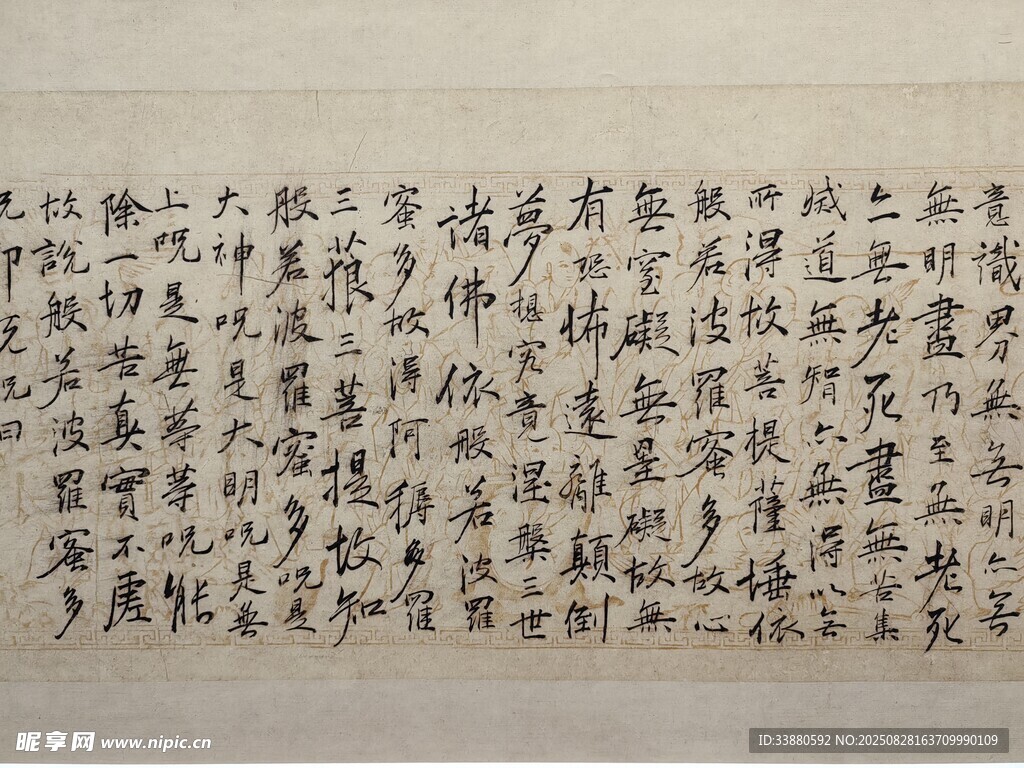 意識界無無明亦無
無明盡乃至無老死
亦無老死盡無苦集
滅道無智亦無得以無
所得故菩提薩埵依
般若波羅蜜多故心
無罣礙無罣礙故無
有恐怖遠離顛倒
夢想究竟涅槃三世
諸佛依般若波羅
蜜多故得阿耨多羅
三藐三菩提故知
般若波羅蜜多呪是
大神呪是大明呪是無
上呪是無等等呪能
除一切苦真實不虛
故說般若波羅蜜多
昵享网 www.nipic.cn
ID:33880592 NO:20250828163709990109